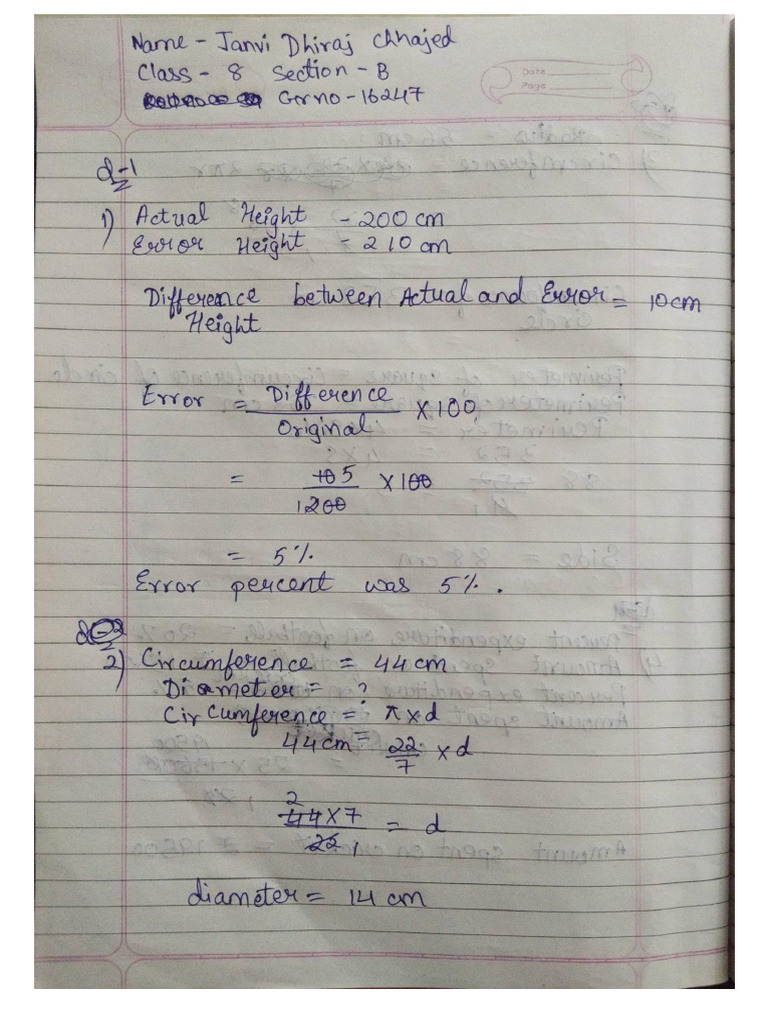 Name - Janvi Dhiraj Chhajed
Class - 8 Section - B
Grno - 16247
Date
Page
Q-1
1) Actual Height - 200 cm
Error Height - 210 cm
Difference between Actual and Error = 10cm
Height
Error = Difference/Original × 100
= 10 5/1 200 × 100
= 5%
Error percent was 5%.
Q-2
2) Circumference = 44 cm
Diameter = ?
Circumference = π × d
44 cm = 22/7 × d
2
44 × 7/22 1 = d
diameter = 14 cm